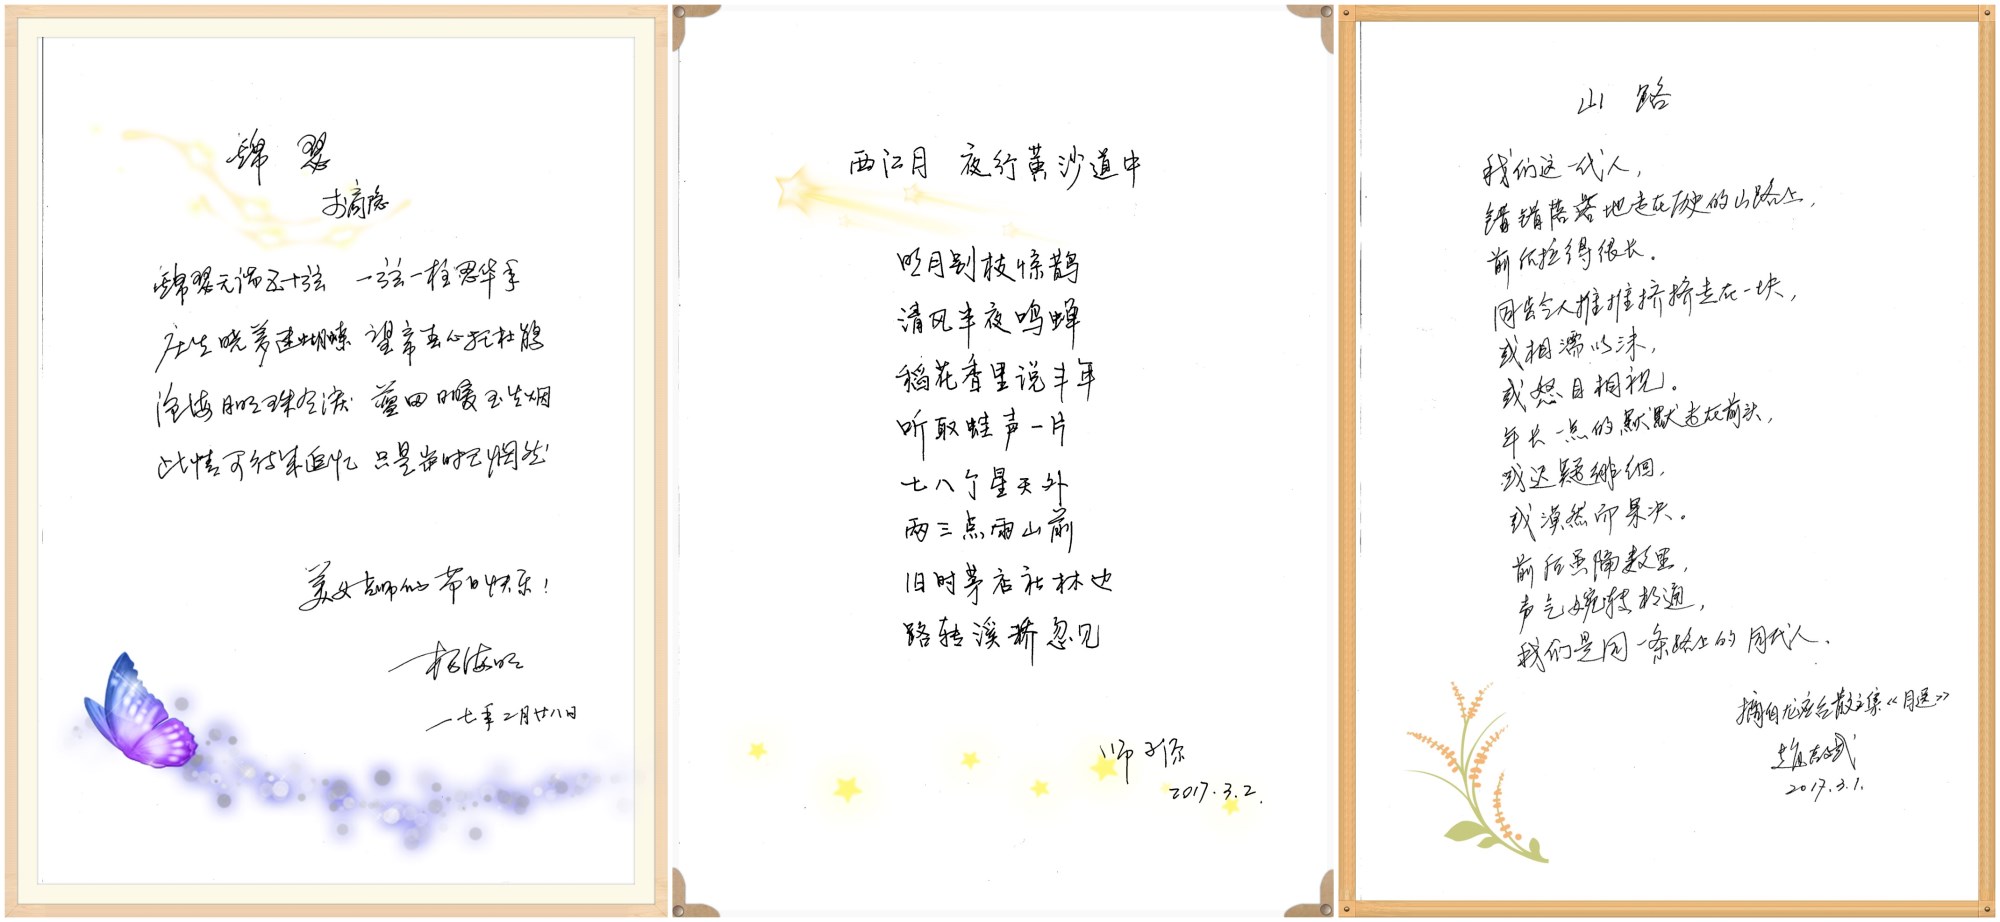 锦瑟
李商隐
锦瑟无端五十弦 一弦一柱思华年
庄生晓梦迷蝴蝶 望帝春心托杜鹃
沧海月明珠有泪 蓝田日暖玉生烟
此情可待成追忆 只是当时已惘然
美女老师们 节日快乐!
杨海明
一七年二月廿八日
西江月 夜行黄沙道中
明月别枝惊鹊
清风半夜鸣蝉
稻花香里说丰年
听取蛙声一片
七八个星天外
两三点雨山前
旧时茅店社林边
路转溪桥忽见
师子原
2017.3.2.
山路
我们这一代人,
错错落落地走在历史的山路上,
前后拉得很长。
同龄人推推挤挤走在一块,
或相濡以沫,
或怒目相视。
年长一点的默默走在前头,
或迟疑徘徊,
或漠然而果决。
前后虽隔数里,
声气婉转相通,
我们是同一条路上的同代人.
摘自龙应台散文集《目送》
2017.3.1.